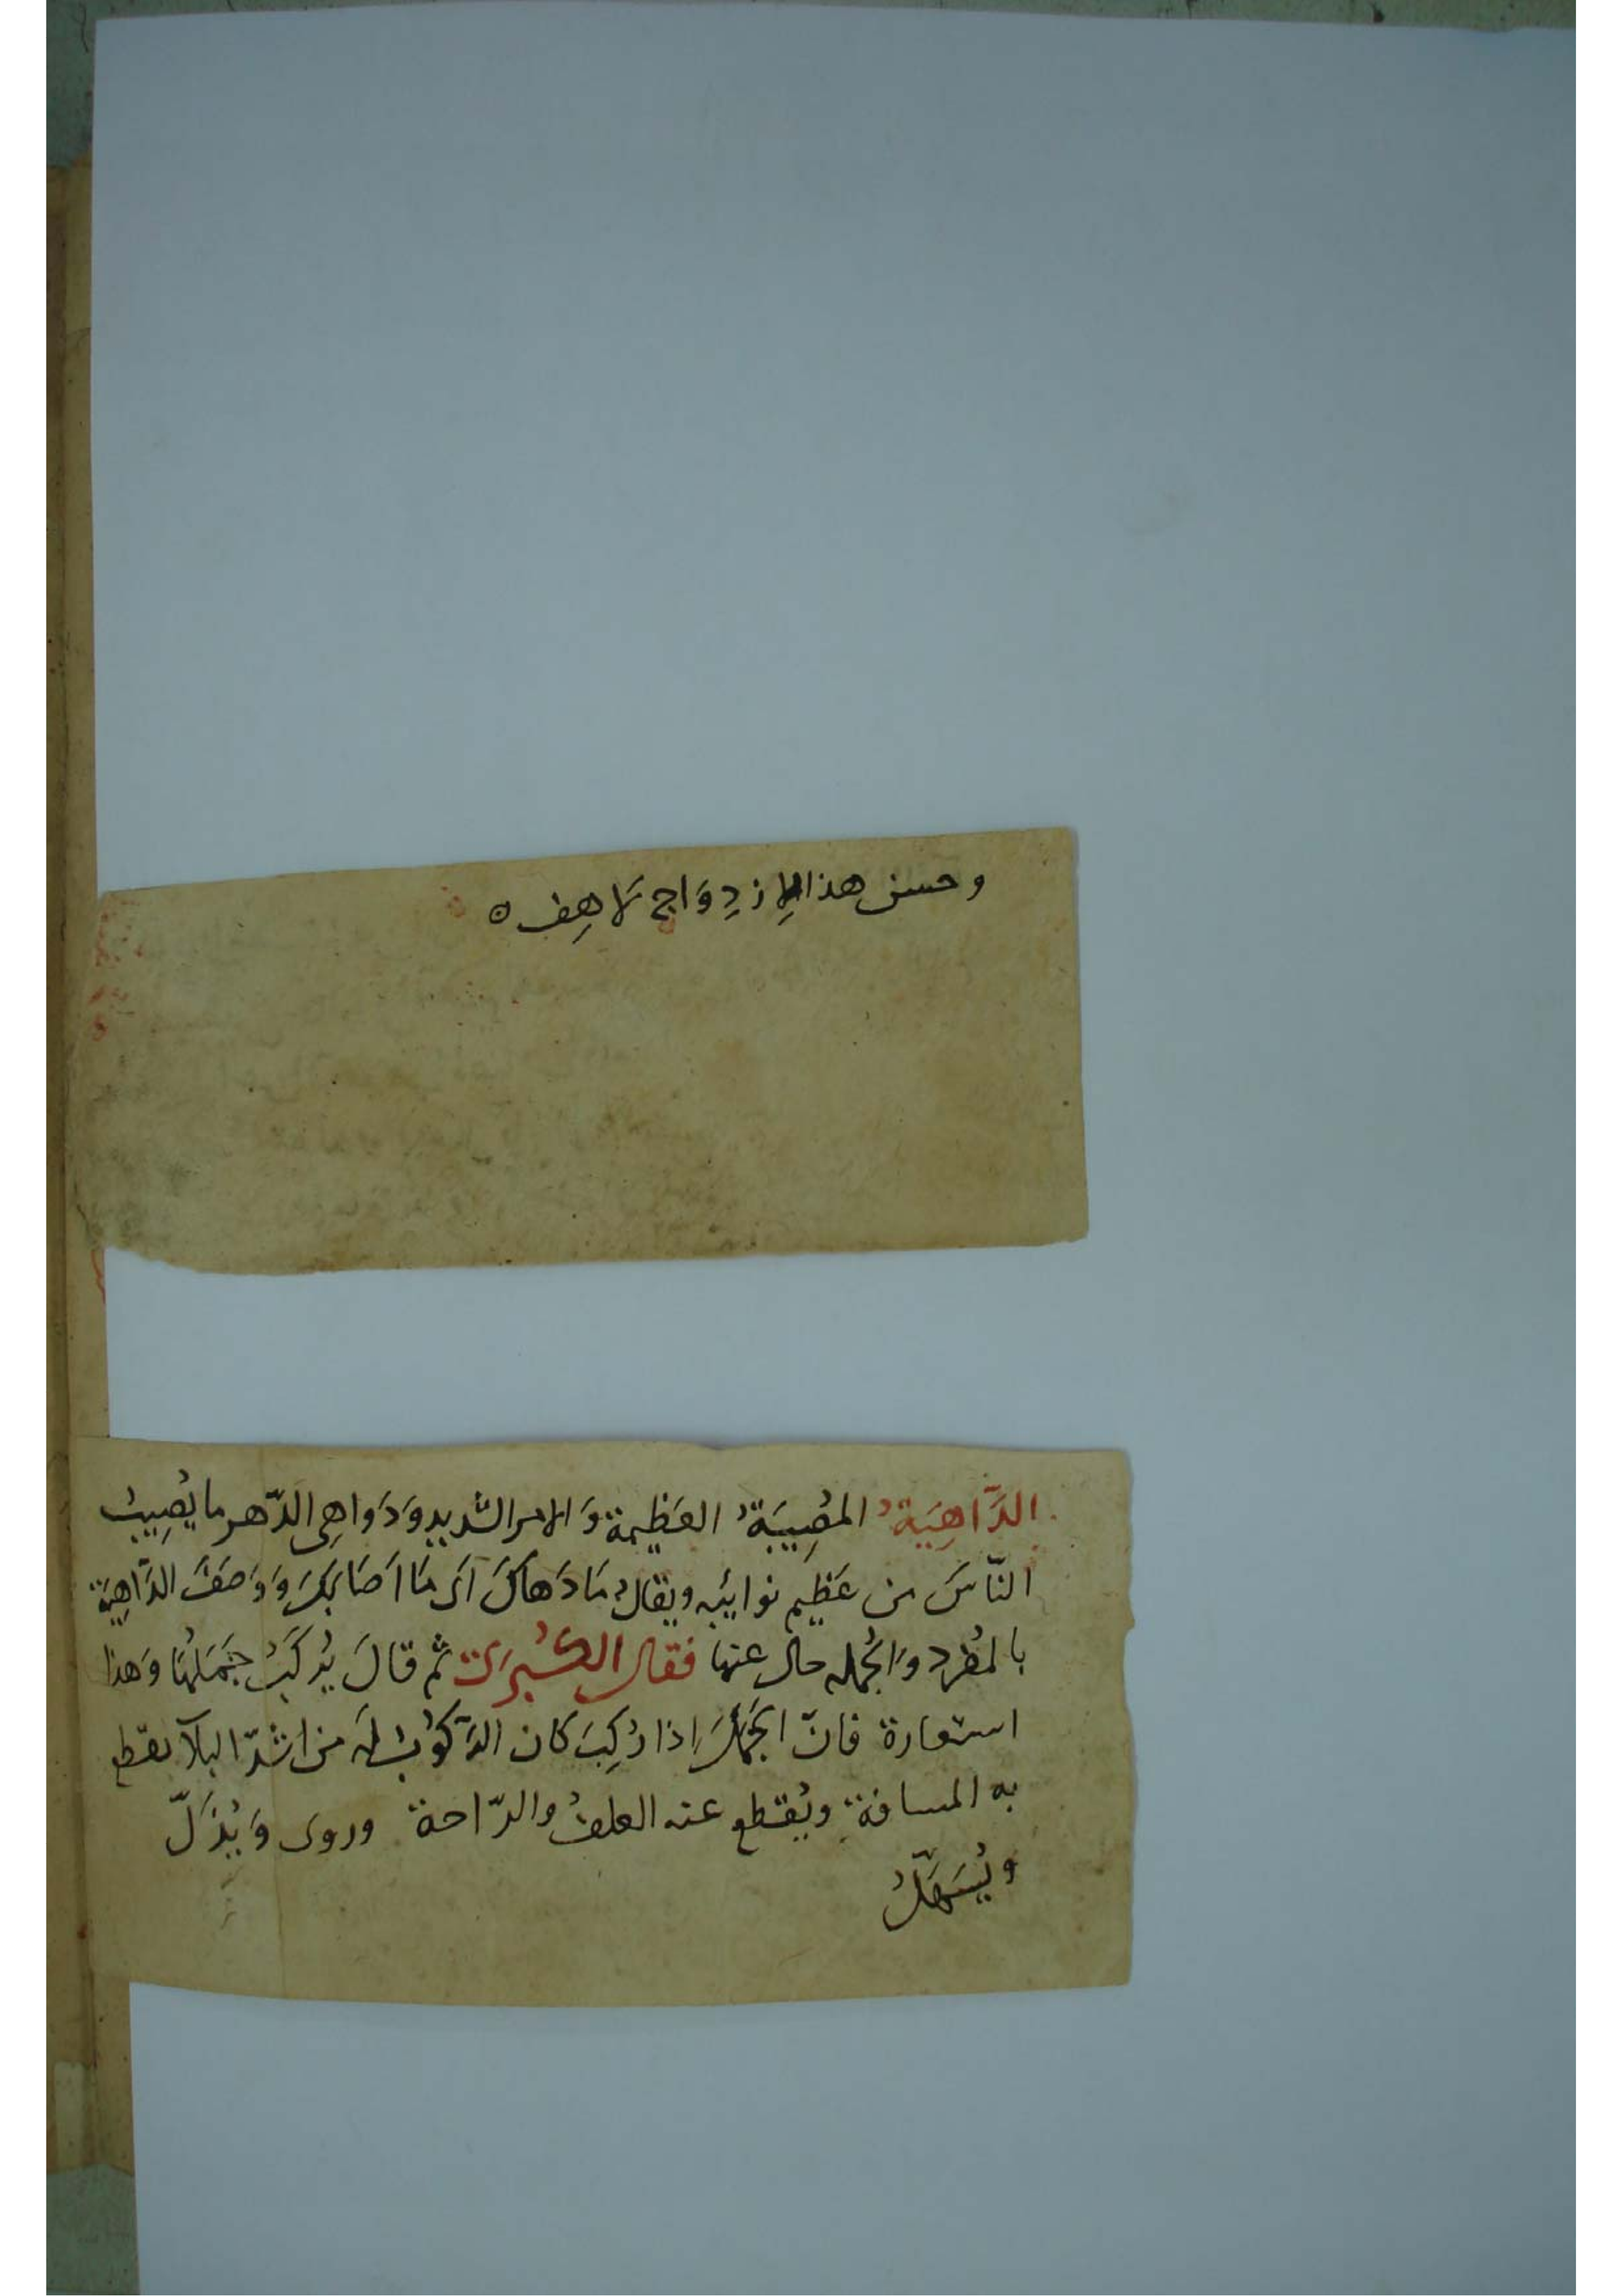 وحسن هذا الازدِوَاج
الدَّاهِيَةُ المُصِيبَةُ العَظِيمة وَالامر الشديد وَدَواهِى الدّهر ما يُصِيبُ
النّاسَ من عَظِيم نوائبِه ويقال مَا دَهاكَ اَى مَا اَصَابَكَ وَوَصَفَ الدَّاهِيَة
بالمُفرد وَالجُمله حال عنها فقال الكُبرَى ثم قالَ يُركَبُ جَمَلُهَا وَهذا
استعارة فانّ الجَمَلَ اِذا رُكِبَ كان الرّكُوبُ لَهُ من اشدّ البلآ يقطع
به المسافة ويُقطع عنه العلفُ والرّاحة وروى وَيُذَلّ
ويُسَهَّلُ